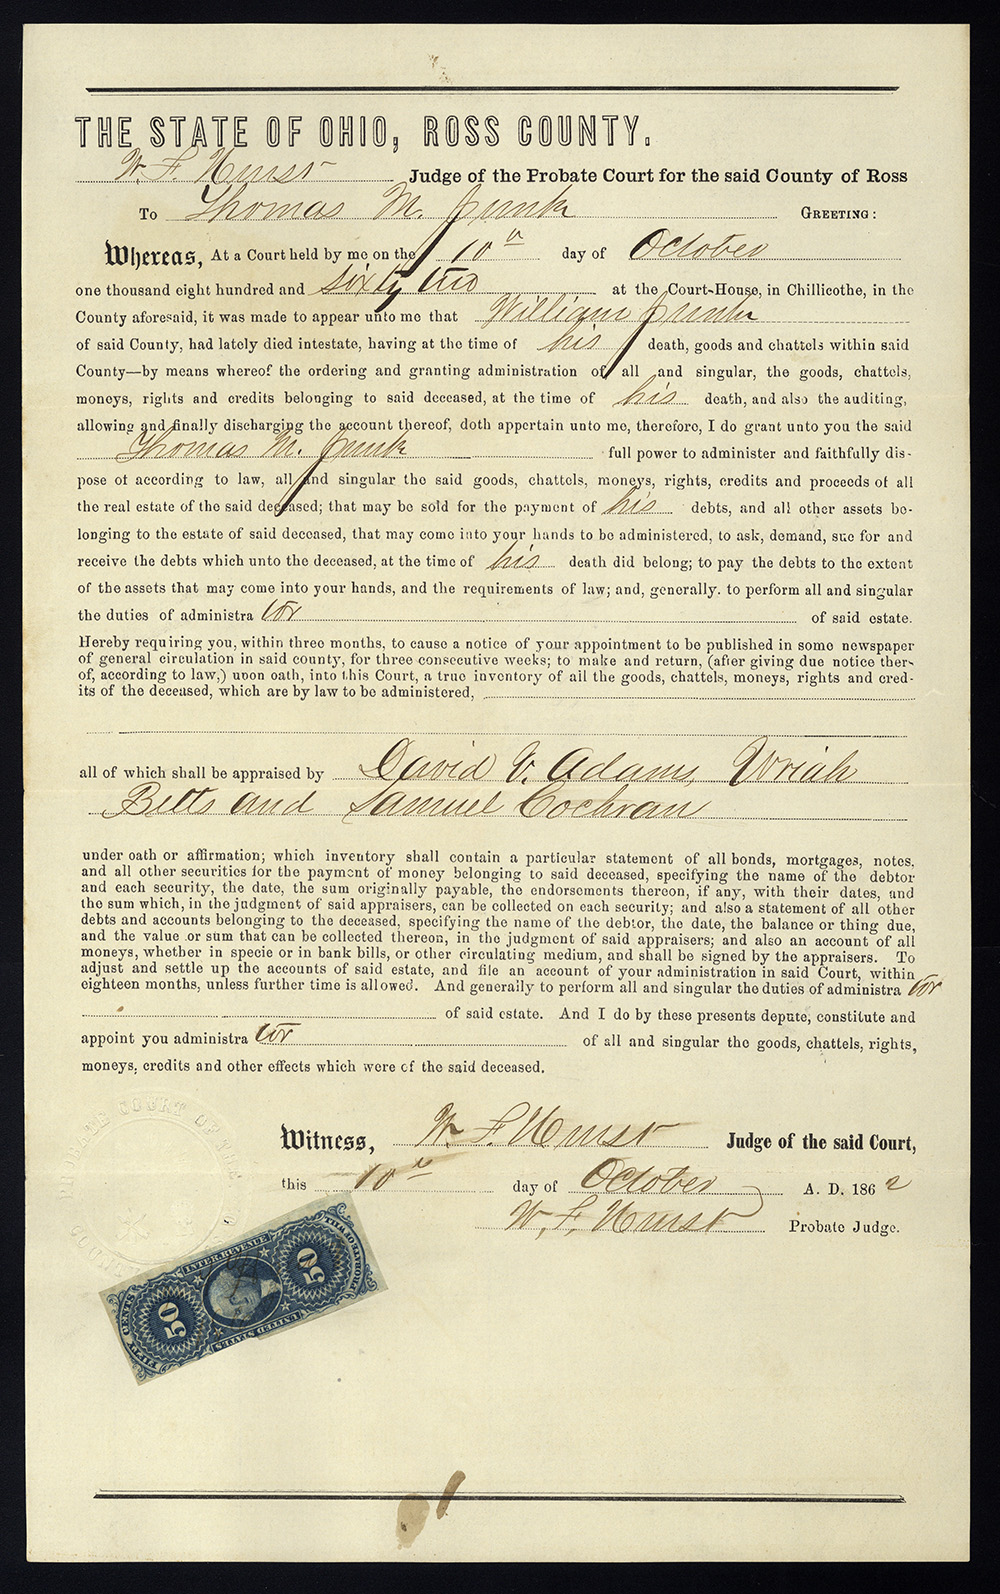 THE STATE OF OHIO, ROSS COUNTY.
W. F. Hurst Judge of the Probate Court for the said County of Ross
To Thomas M. Junk GREETING:
Whereas, At a Court held by me on the 10th day of October
one thousand eight hundred and sixty two at the Court-House, in Chillicothe, in the
County aforesaid, it was made to appear unto me that William Junk
of said County, had lately died intestate, having at the time of his death, goods and chattels within said
County—by means whereof the ordering and granting administration of all and singular, the goods, chattels,
moneys, rights and credits belonging to said deceased, at the time of his death, and also the auditing,
allowing and finally discharging the account thereof, doth appertain unto me, therefore, I do grant unto you the said
Thomas M. Junk full power to administer and faithfully dis-
pose of according to law, all and singular the said goods, chattels, moneys, rights, credits and proceeds of all
the real estate of the said deceased; that may be sold for the payment of his debts, and all other assets be-
longing to the estate of said deceased, that may come into your hands to be administered, to ask, demand, sue for and
receive the debts which unto the deceased, at the time of his death did belong; to pay the debts to the extent
of the assets that may come into your hands, and the requirements of law; and, generally. to perform all and singular
the duties of administra tor of said estate.
Hereby requiring you, within three months, to cause a notice of your appointment to be published in some newspaper
of general circulation in said county, for three consecutive weeks; to make and return, (after giving due notice ther-
of, according to law,) upon oath, into this Court, a true inventory of all the goods, chattels, moneys, rights and cred-
its of the deceased, which are by law to be administered,
all of which shall be appraised by David V. Adams, Uriah
Betts and Samuel Cochran
under oath or affirmation; which inventory shall contain a particular statement of all bonds, mortgages, notes,
and all other securities for the payment of money belonging to said deceased, specifying the name of the debtor
and each security, the date, the sum originally payable, the endorsements thereon, if any, with their dates, and
the sum which, in the judgment of said appraisers, can be collected on each security; and also a statement of all other
debts and accounts belonging to the deceased, specifying the name of the debtor, the date, the balance or thing due,
and the value or sum that can be collected thereon, in the judgment of said appraisers; and also an account of all
moneys, whether in specie or in bank bills, or other circulating medium, and shall be signed by the appraisers. To
adjust and settle up the accounts of said estate, and file an account of your administration in said Court, within
eighteen months, unless further time is allowed. And generally to perform all and singular the duties of administra tor
of said estate. And I do by these presents depute, constitute and
appoint you administra tor of all and singular the goods, chattels, rights,
moneys, credits and other effects which were of the said deceased.
Witness, W. F. Hurst Judge of the said Court,
this 10th day of October A. D. 1862
W. F. Hurst Probate Judge.
INTER. REVENUE
PROBATE OF WILL
50
50
FIFTY CENTS
UNITED STATES
PROBATE COURT OF